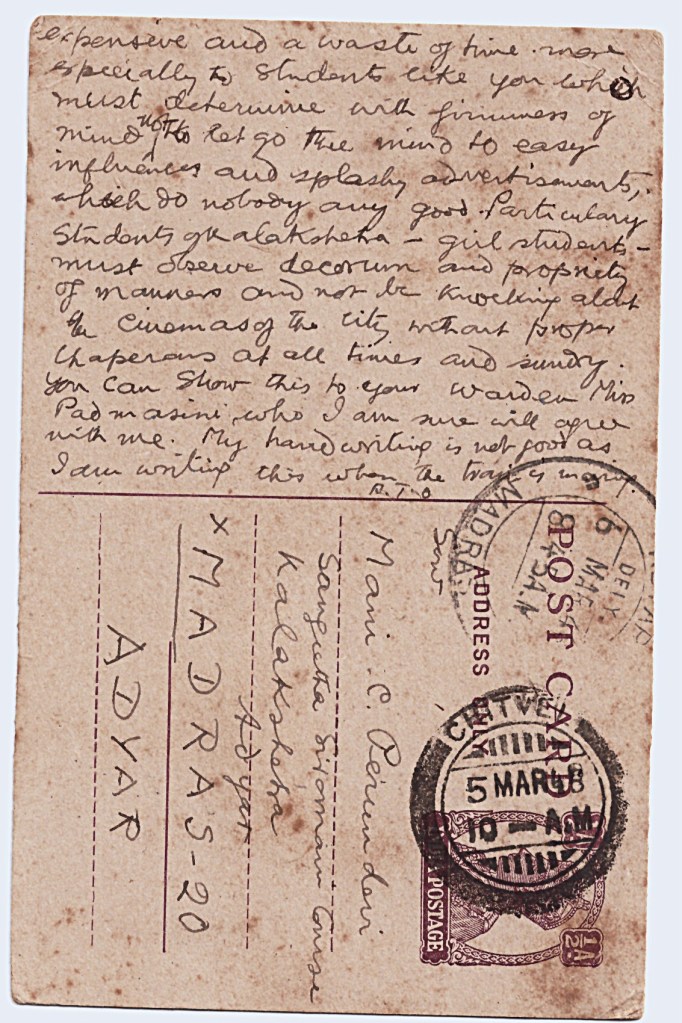 expensive and a waste of time more
especially to students like you which
must determine with firmness of
mind not to let go the mind to easy
influences and splashy advertisements,
which do nobody any good. Particulary
Students of Kalakshetra – girl students –
must observe decorum and propriety
of manners and not be knocking about
the cinemas of the city without proper
Chaperons at all times and sundry.
You can show this to your Warden Miss
Padmasini, who I am sure will agree
with me. My handwriting is not good as
I am writing this when the train is moving.
P.T.O
POST CARD
ADDRESS ONLY
Sow
Mani C. Perundevi
Sangitha Siromani Course
Kalakshetra
Adyar
x MADRAS-20
ADYAR
MADRAS
DELY.
6 MAR
8 45 A.M
CHITVEL
5 MAR 48
10 – A.M
POSTAGE
½A